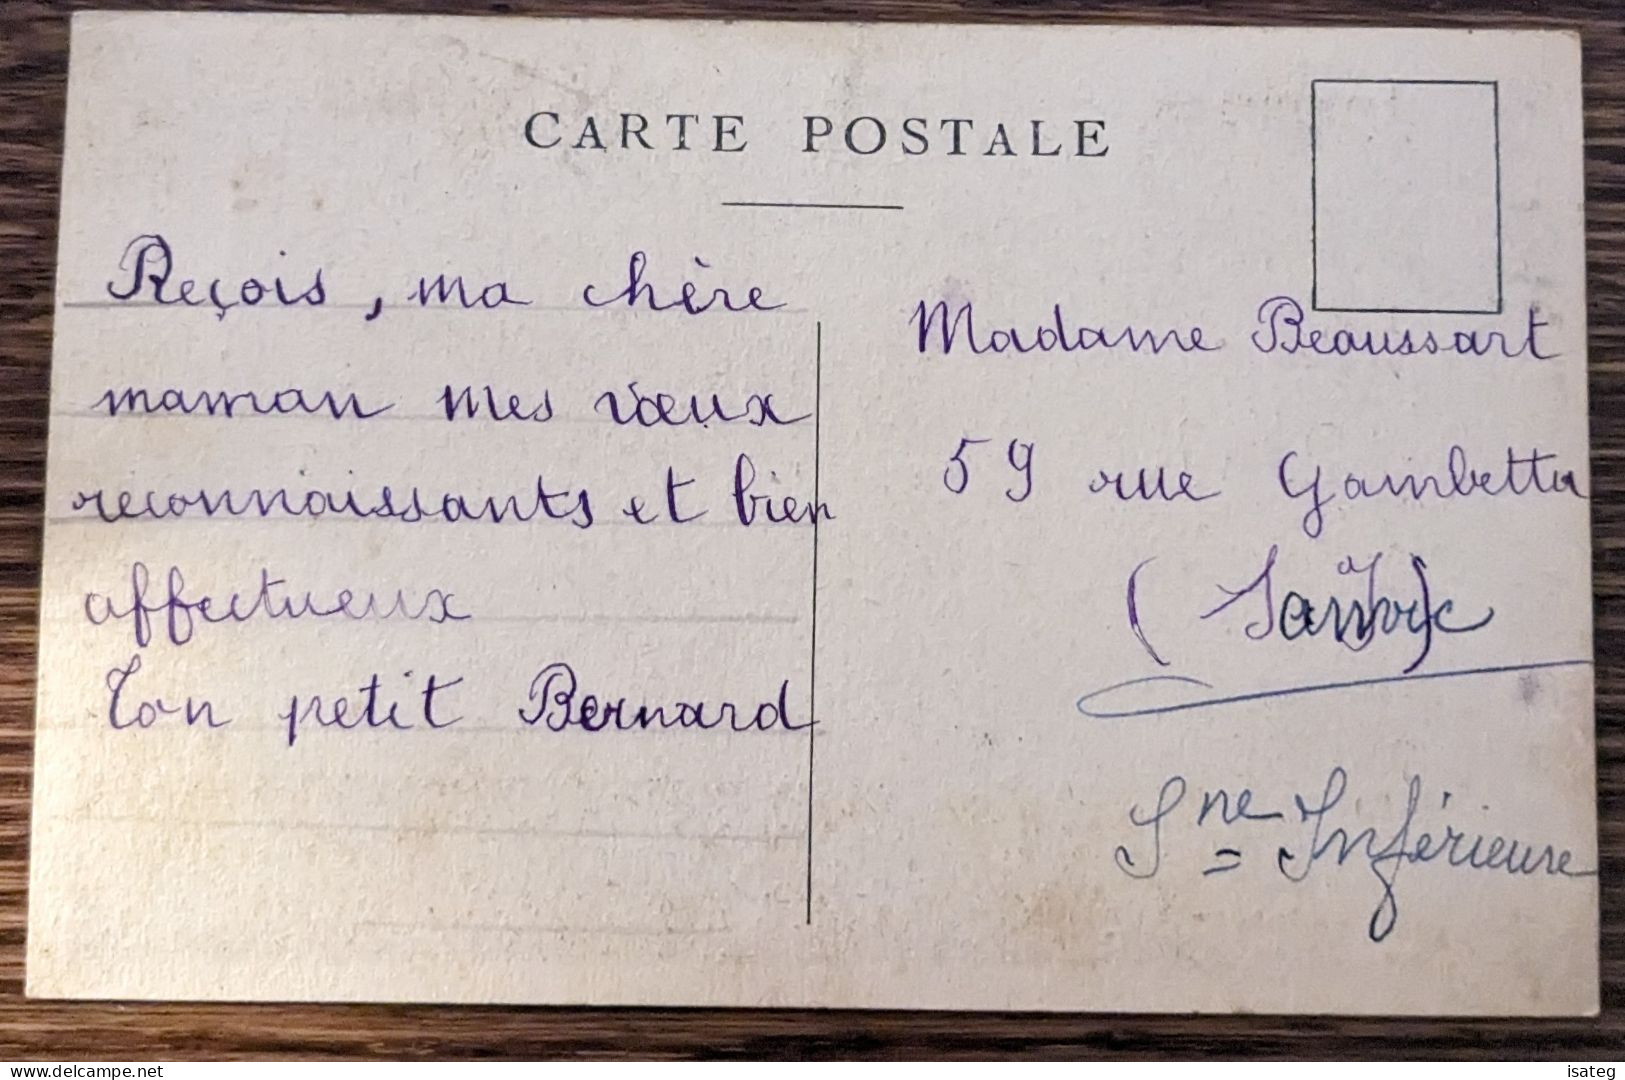 CARTE POSTALE
Reçois, ma chère
maman mes vœux
reconnaissants et bien
affectueux
Ton petit Bernard
Madame Beaussart
59 rue Gambetta
Sne = Inférieure
isateg